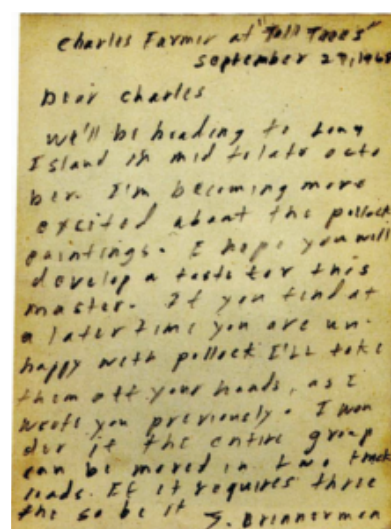 Charles Farmer at "Tall Trees"
September 27, 1968
Dear Charles
We'll be heading to Long
Island in mid to late octo
ber. I'm becoming more
excited about the pollock
paintings. I hope you will
develop a taste for this
master. If you find at
a later time you are un-
happy with pollock I'll take
them off your hands, as I
wrote you previously. I won
der if the entire group
can be moved in two truck
loads. If it requires three
the so be it
S. Brinnerman